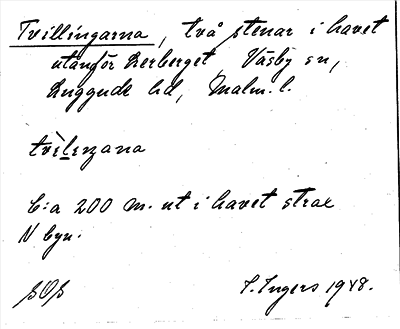 Tvillingarna, två stenar i havet
utanför Lerberget, Väsby sn,
Luggude hd, Malm. l.
tvìlıŋana
C:a 200 m. ut i havet strax
N byn.
SOS S. Ingers 1948.